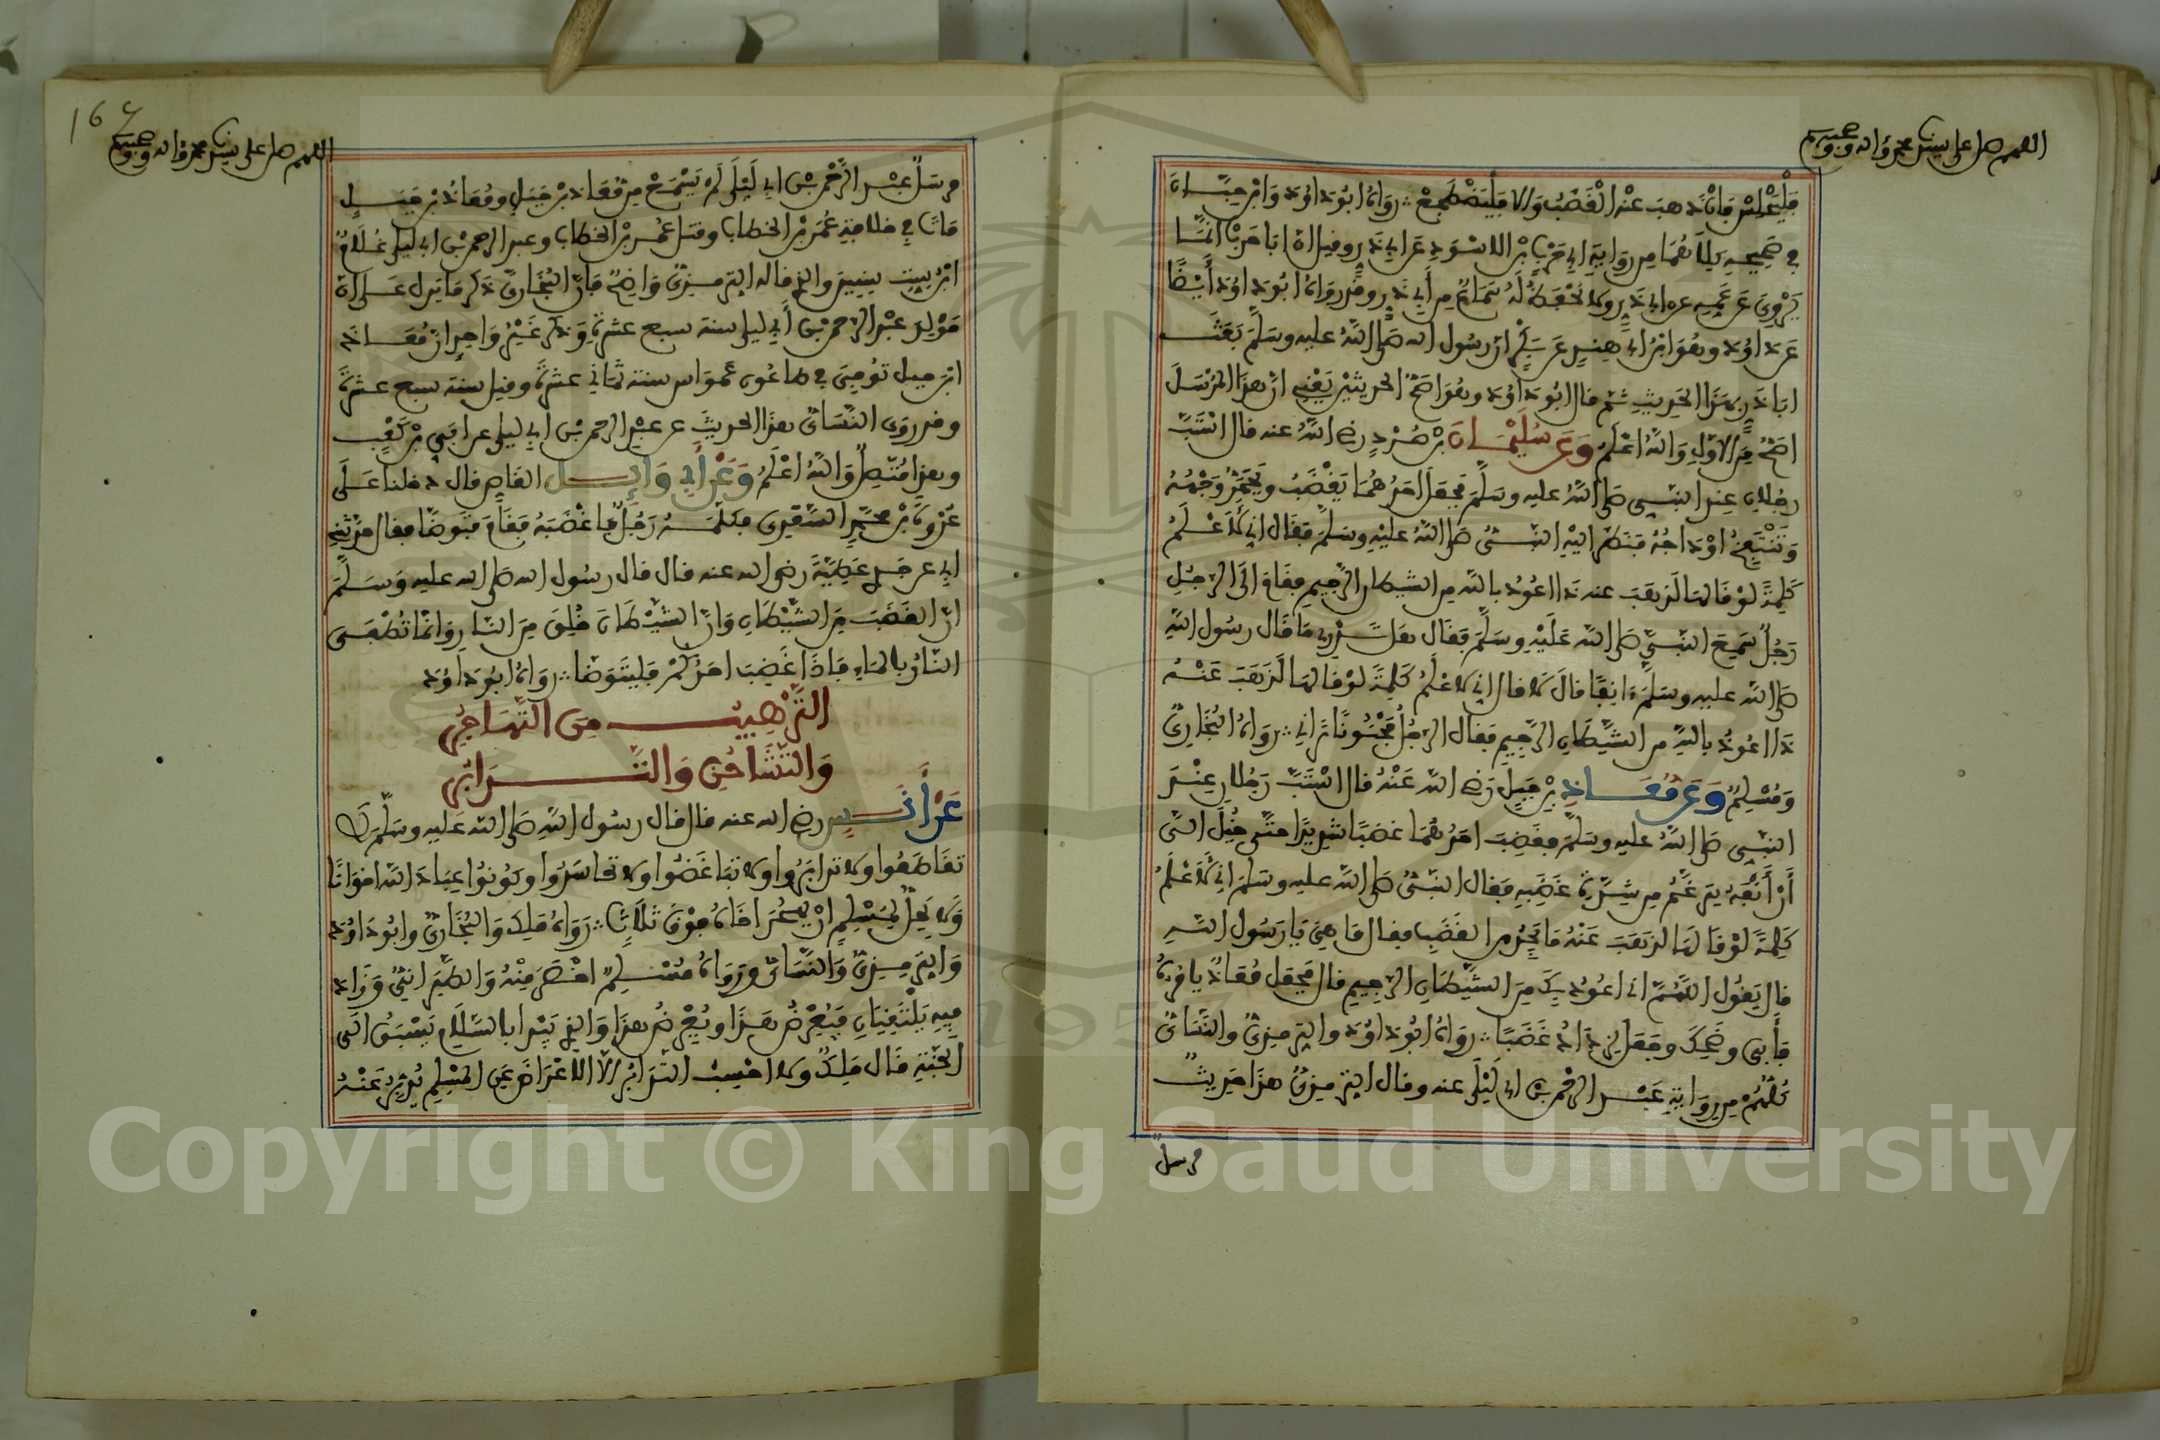 اللهم صل على سيدنا محمد وآله وصحبه
فليجلس فإن ذهب عنه الغضب وإلا فليضطجع رواه أبو داود وابن حبان
في صحيحه كلاهما من رواية أبي حرب بن الأسود عن أبي ذر وقيل إن أبا حرب إنما
يروي عن عمه عن أبي ذر ولا يحفظ له سماع من أبي ذر وقد رواه أبو داود أيضا
عن داود وهو ابن أبي هند عن بكر أن رسول الله صلى الله عليه وسلم بعث
أبا ذر بهذا الحديث ثم قال أبو داود وهو أصح الحديثين يعني أن هذا المرسل
أصح من الأول والله أعلم وعن سليمان بن صرد رضي الله عنه قال استب
رجلان عند النبي صلى الله عليه وسلم فجعل أحدهما يغضب ويحمر وجهه
وتنتفخ أوداجه فنظر إليه النبي صلى الله عليه وسلم فقال إني لأعلم
كلمة لو قالها لذهب عنه ذا أعوذ بالله من الشيطان الرجيم فقام إلى الرجل
رجل سمع النبي صلى الله عليه وسلم فقال هل تدري ما قال رسول الله
صلى الله عليه وسلم ءانفا قال لا قال إني لأعلم كلمة لو قالها لذهب عنه
ذا أعوذ بالله من الشيطان الرجيم فقال الرجل أمجنونا تراني رواه البخاري
ومسلم وعن معاذ بن جبل رضي الله عنه قال استب رجلان عند
النبي صلى الله عليه وسلم فغضب أحدهما غضبا شديدا حتى خيل إلي
أن أنفه يتمزع من شدة غضبه فقال النبي صلى الله عليه وسلم إني لأعلم
كلمة لو قالها لذهب عنه ما يجد من الغضب فقال ما هي يا رسول الله
قال يقول اللهم إني أعوذ بك من الشيطان الرجيم قال فجعل معاذ يأمره
فأبى وضحك وجعل يزداد غضبا رواه أبو داود والترمذي والنسائي
كلهم من رواية عبد الرحمن بن أبي ليلى عنه وقال الترمذي هذا حديث
مرسل
167
اللهم صل على سيدنا محمد وآله وصحبه
مرسل عبد الرحمن بن أبي ليلى لم يسمع من معاذ بن جبل ومعاذ بن جبل
مات في خلافة عمر بن الخطاب وقتل عمر بن الخطاب وعبد الرحمن بن أبي ليلى غلام
ابن ست سنين والذي قاله الترمذي واضح فإن البخاري ذكر ما يدل على أن
مولد عبد الرحمن بن أبي ليلى سنة سبع عشرة وذكر غير واحد أن معاذ
ابن جبل توفي في طاعون عمواس سنة ثماني عشرة وقيل سنة سبع عشرة
وقد روى النسائي هذا الحديث عن عبد الرحمن بن أبي ليلى عن أبي بن كعب
وهذا متصل والله أعلم وعن أبي وايل القاص قال دخلنا على
عروة بن محمد السعدي فكلمه رجل فأغضبه فقام فتوضأ فقال حدثني
أبي عن جدي عطية رضي الله عنه قال قال رسول الله صلى الله عليه وسلم
إن الغضب من الشيطان وإن الشيطان خلق من النار وإنما تطفى
النار بالماء فإذا غضب أحدكم فليتوضأ رواه أبو داود
الترهيب من التهاجر
والتشاحن والتدابر
عن أنس رضي الله عنه قال قال رسول الله صلى الله عليه وسلم لا
تقاطعوا ولا تدابروا ولا تباغضوا ولا تحاسدوا وكونوا عباد الله إخوانا
ولا يحل لمسلم أن يهجر أخاه فوق ثلاث رواه ملك والبخاري وأبو داود
والترمذي والنسائي ورواه مسلم أخصر منه والطبراني وزاد
فيه يلتقيان فيعرض هذا ويعرض هذا والذي يبدأ بالسلام يسبق إلى
الجنة قال ملك ولا أحسب التدابر إلا الإعراض عن المسلم يدبر عنه
Copyright © King Saud University
1957